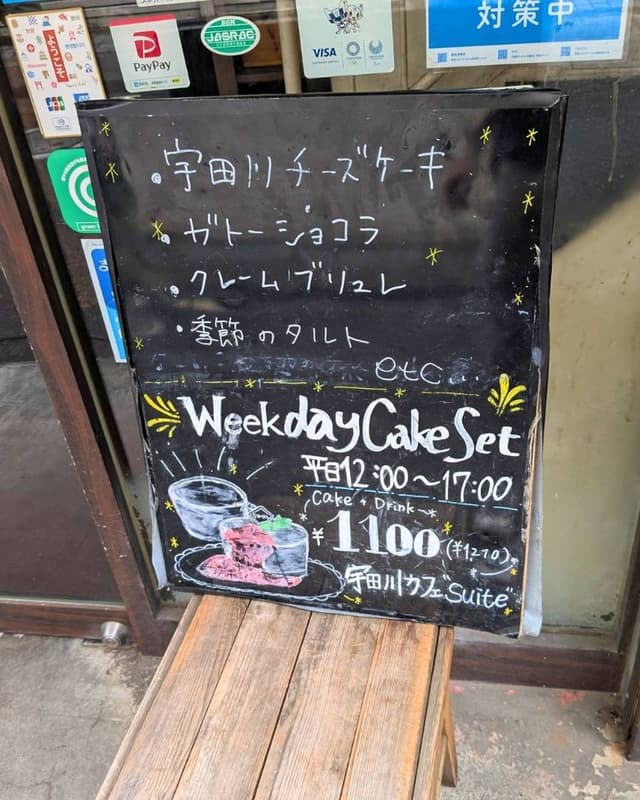 ようこそ
JCB
PayPay
JASRAC
VISA
対策中
・宇田川チーズケーキ
・ガトーショコラ
・クレームブリュレ
・季節のタルト
etc
Weekday Cake Set
平日12:00～17:00
Cake + Drink
¥1100 (¥1210)
宇田川カフェ"Suite"